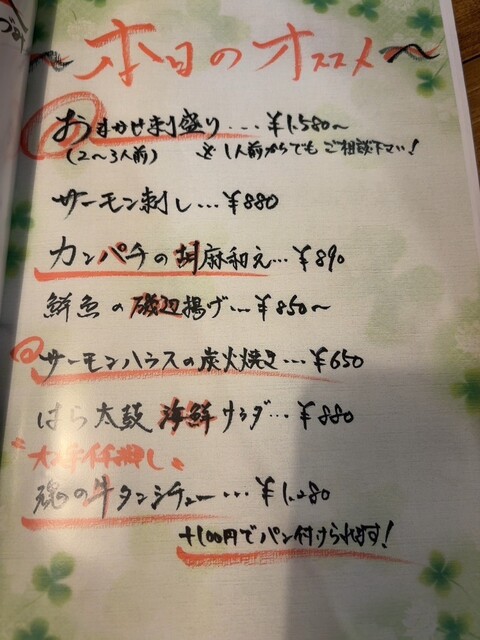 〜本日のオススメ〜
おまかせ刺盛り...¥1,580〜
(2〜3人前) ※1人前からでもご相談下さい!
サーモン刺し...¥880
カンパチの胡麻和え...¥890
鮮魚の磯辺揚げ...¥850〜
サーモンハラスの炭火焼き...¥650
はら太鼓 海鮮サラダ...¥880
魂の牛タンシチュー...¥1,280
+100円でパン付けられます!